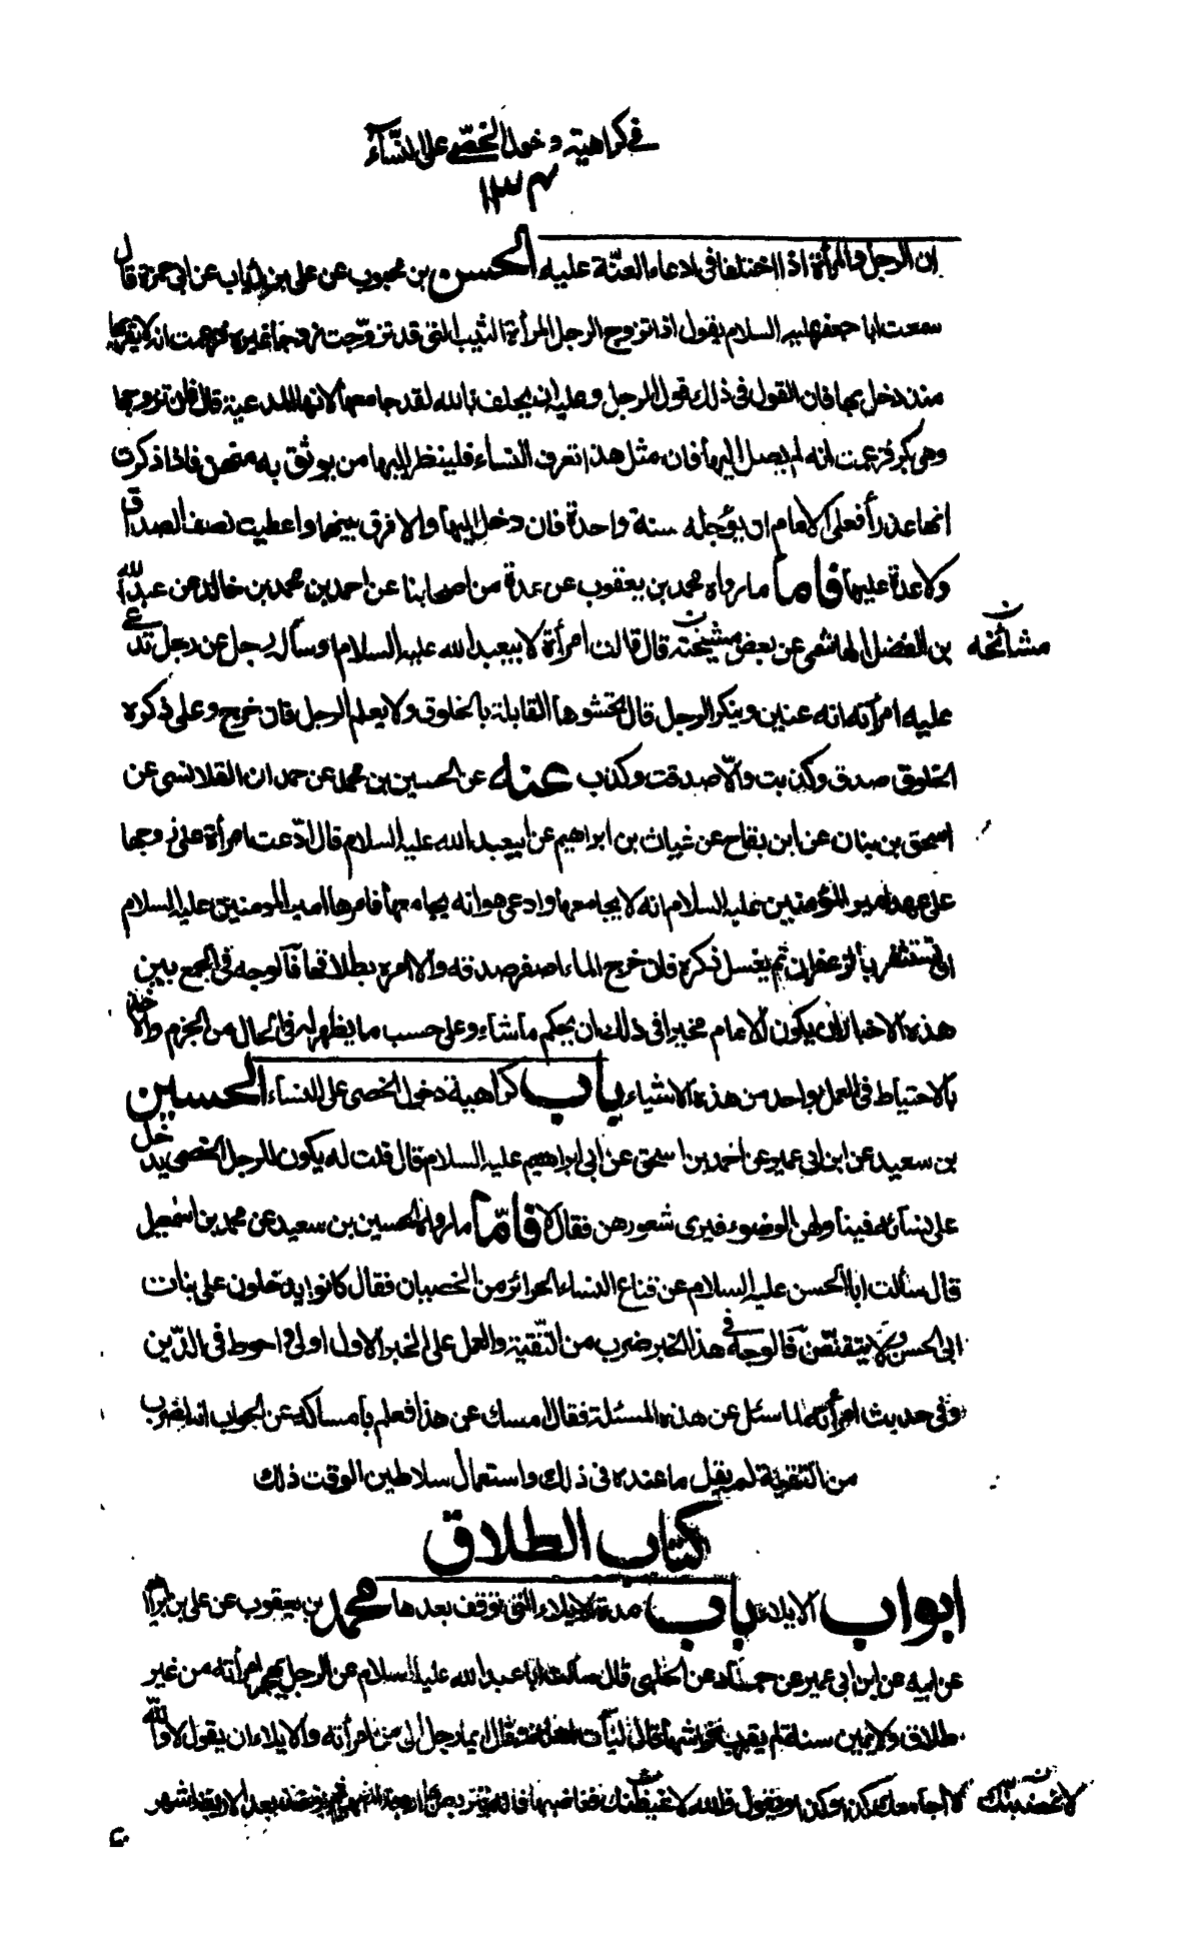 في كراهية دخول الخصي على النساء
١٣٤
ان الرجل والمرأة اذا اختلفا في ادعاء العنّة عليه الحسن بن محبوب عن على بن رئاب عن ابى حمزة قال
سمعت ابا جعفر عليه السلام يقول اذا تزوج الرجل المرأة الثيب التى قد تزوّجت زوجا غيره فزعمت انه لا يقربها
منذ دخل بها فان القول فى ذلك قول الرجل وعليه ان يحلف بالله لقد جامعها لانها المدعية قال فان تزوجها
وهى بكر فزعمت انه لم يصل اليها فان مثل هذا تعرف النساء فلينظر اليها من يوثق به منهن فاذا ذكرت
انها عذراء فعلى الامام ان يؤجله سنة واحدة فان دخل اليها والا فرق بينهما واعطيت نصف الصداق
ولا عدة عليها فاما ما رواه محمد بن يعقوب عن عدة من اصحابنا عن احمد بن محمد بن خالد عن عبد الله
بن الفضل الهاشمى عن بعض مشيخته قال قالت امرأة لابيعبد الله عليه السلام او سأله رجل عن رجل تدعى
مشائخه ن
عليه امرأته انه عنين وينكر الرجل قال تحشوها القابلة بالخلوق ولا يعلم الرجل فان خرج وعلى ذكره
الخلوق صدق وكذبت والّا صدقت وكذب عنه عن الحسين بن محمد عن حمدان القلانسى عن
اسحق بن بنان عن ابن بقاح عن غياث بن ابراهيم عن ابيعبد الله عليه السلام قال ادّعت امرأة على زوجها
على عهد امير المؤمنين عليه السلام انه لا يجامعها وادعى هو انه يجامعها فامرها امير المؤمنين عليه السلام
ان تستثفر بالزعفران ثم يغسل ذكره فان خرج الماء اصفر صدقه والا امره بطلاقها فالوجه فى الجمع بين
هذه الاخبار ان يكون الامام مخيرا فى ذلك ان يحكم ما شاء وعلى حسب ما يظهر له فى الحال من الجزم والاخذ
بالاحتياط فى العمل بواحد من هذه الاشياء باب كراهية دخول الخصى على النساء الحسين
بن سعيد عن ابن ابى عمير عن احمد بن اسحق عن ابى ابراهيم عليه السلام قال قلت له يكون للرجل الخصى يدخل
على نسائه فيناولهن الوضوء فيرى شعورهن فقال لا فامّا ما رواه الحسين بن سعيد عن محمد بن اسمعيل
قال سألت ابا الحسن عليه السلام عن قناع النساء الحرائر من الخصيان فقال كانوا يدخلون على بنات
ابى الحسن ولا يتقنّعن فالوجه فى هذا الخبر ضرب من التّقية والعمل على الخبر الاول اولى واحوط فى الدّين
وفى حديث اخر انه لما سئل عن هذه المسئلة فقال امسك عن هذا فعلم بامساكه عن الجواب انه لضرب
من التقية لم يقل ما عنده فى ذلك واستعمال سلاطين الوقت ذلك
كتاب الطلاق
ابواب الايلاء باب مدة الايلاء التى توقف بعدها محمد بن يعقوب عن على بن ابراهيم
عن ابيه عن ابن ابى عمير عن حماد عن الحلبى قال سألت ابا عبد الله عليه السلام عن الرجل يهجر امرأته من غير
طلاق ولا يمين سنة لم يقرب فراشها قال ليأت اهله وقال ايما رجل الى من امرأته والايلاء ان يقول لا والله
لا اجامعك كذا وكذا او يقول والله لاغيظنك ثم يغاضبها فانه يتربص بها اربعة اشهر ثم يؤخذ بعد الاربعة اشهر
لاغضبنّك ن